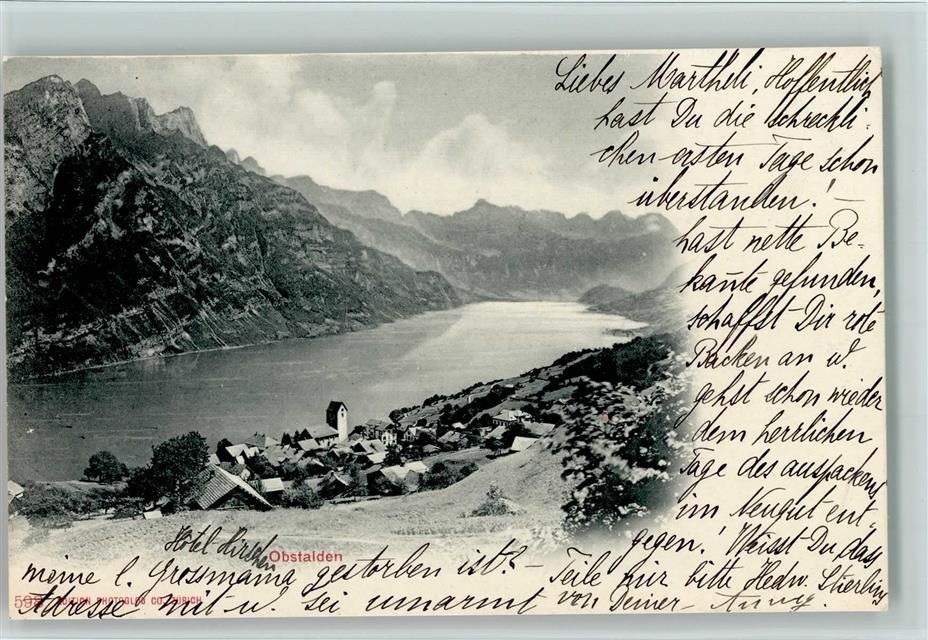 Liebes Martheli, Hoffentlich
hast Du die schreckli-
chen ersten Tage schon
überstanden! —
hast nette Be-
kan̄te gefunden,
schaffst Dir rote
Backen an u.
gehst schon wieder
dem herrlichen
Tage des auspackens
im Neugut ent-
gegen! Weisst Du dass
meine l. Grossmama gestorben ist? - Teile mir bitte Hedw. Stierlins
Adresse mit u. sei umarmt von Deiner
Hôtel Hirschen
Obstalden
EDITION PHOTOGLOB CO. ZÜRICH